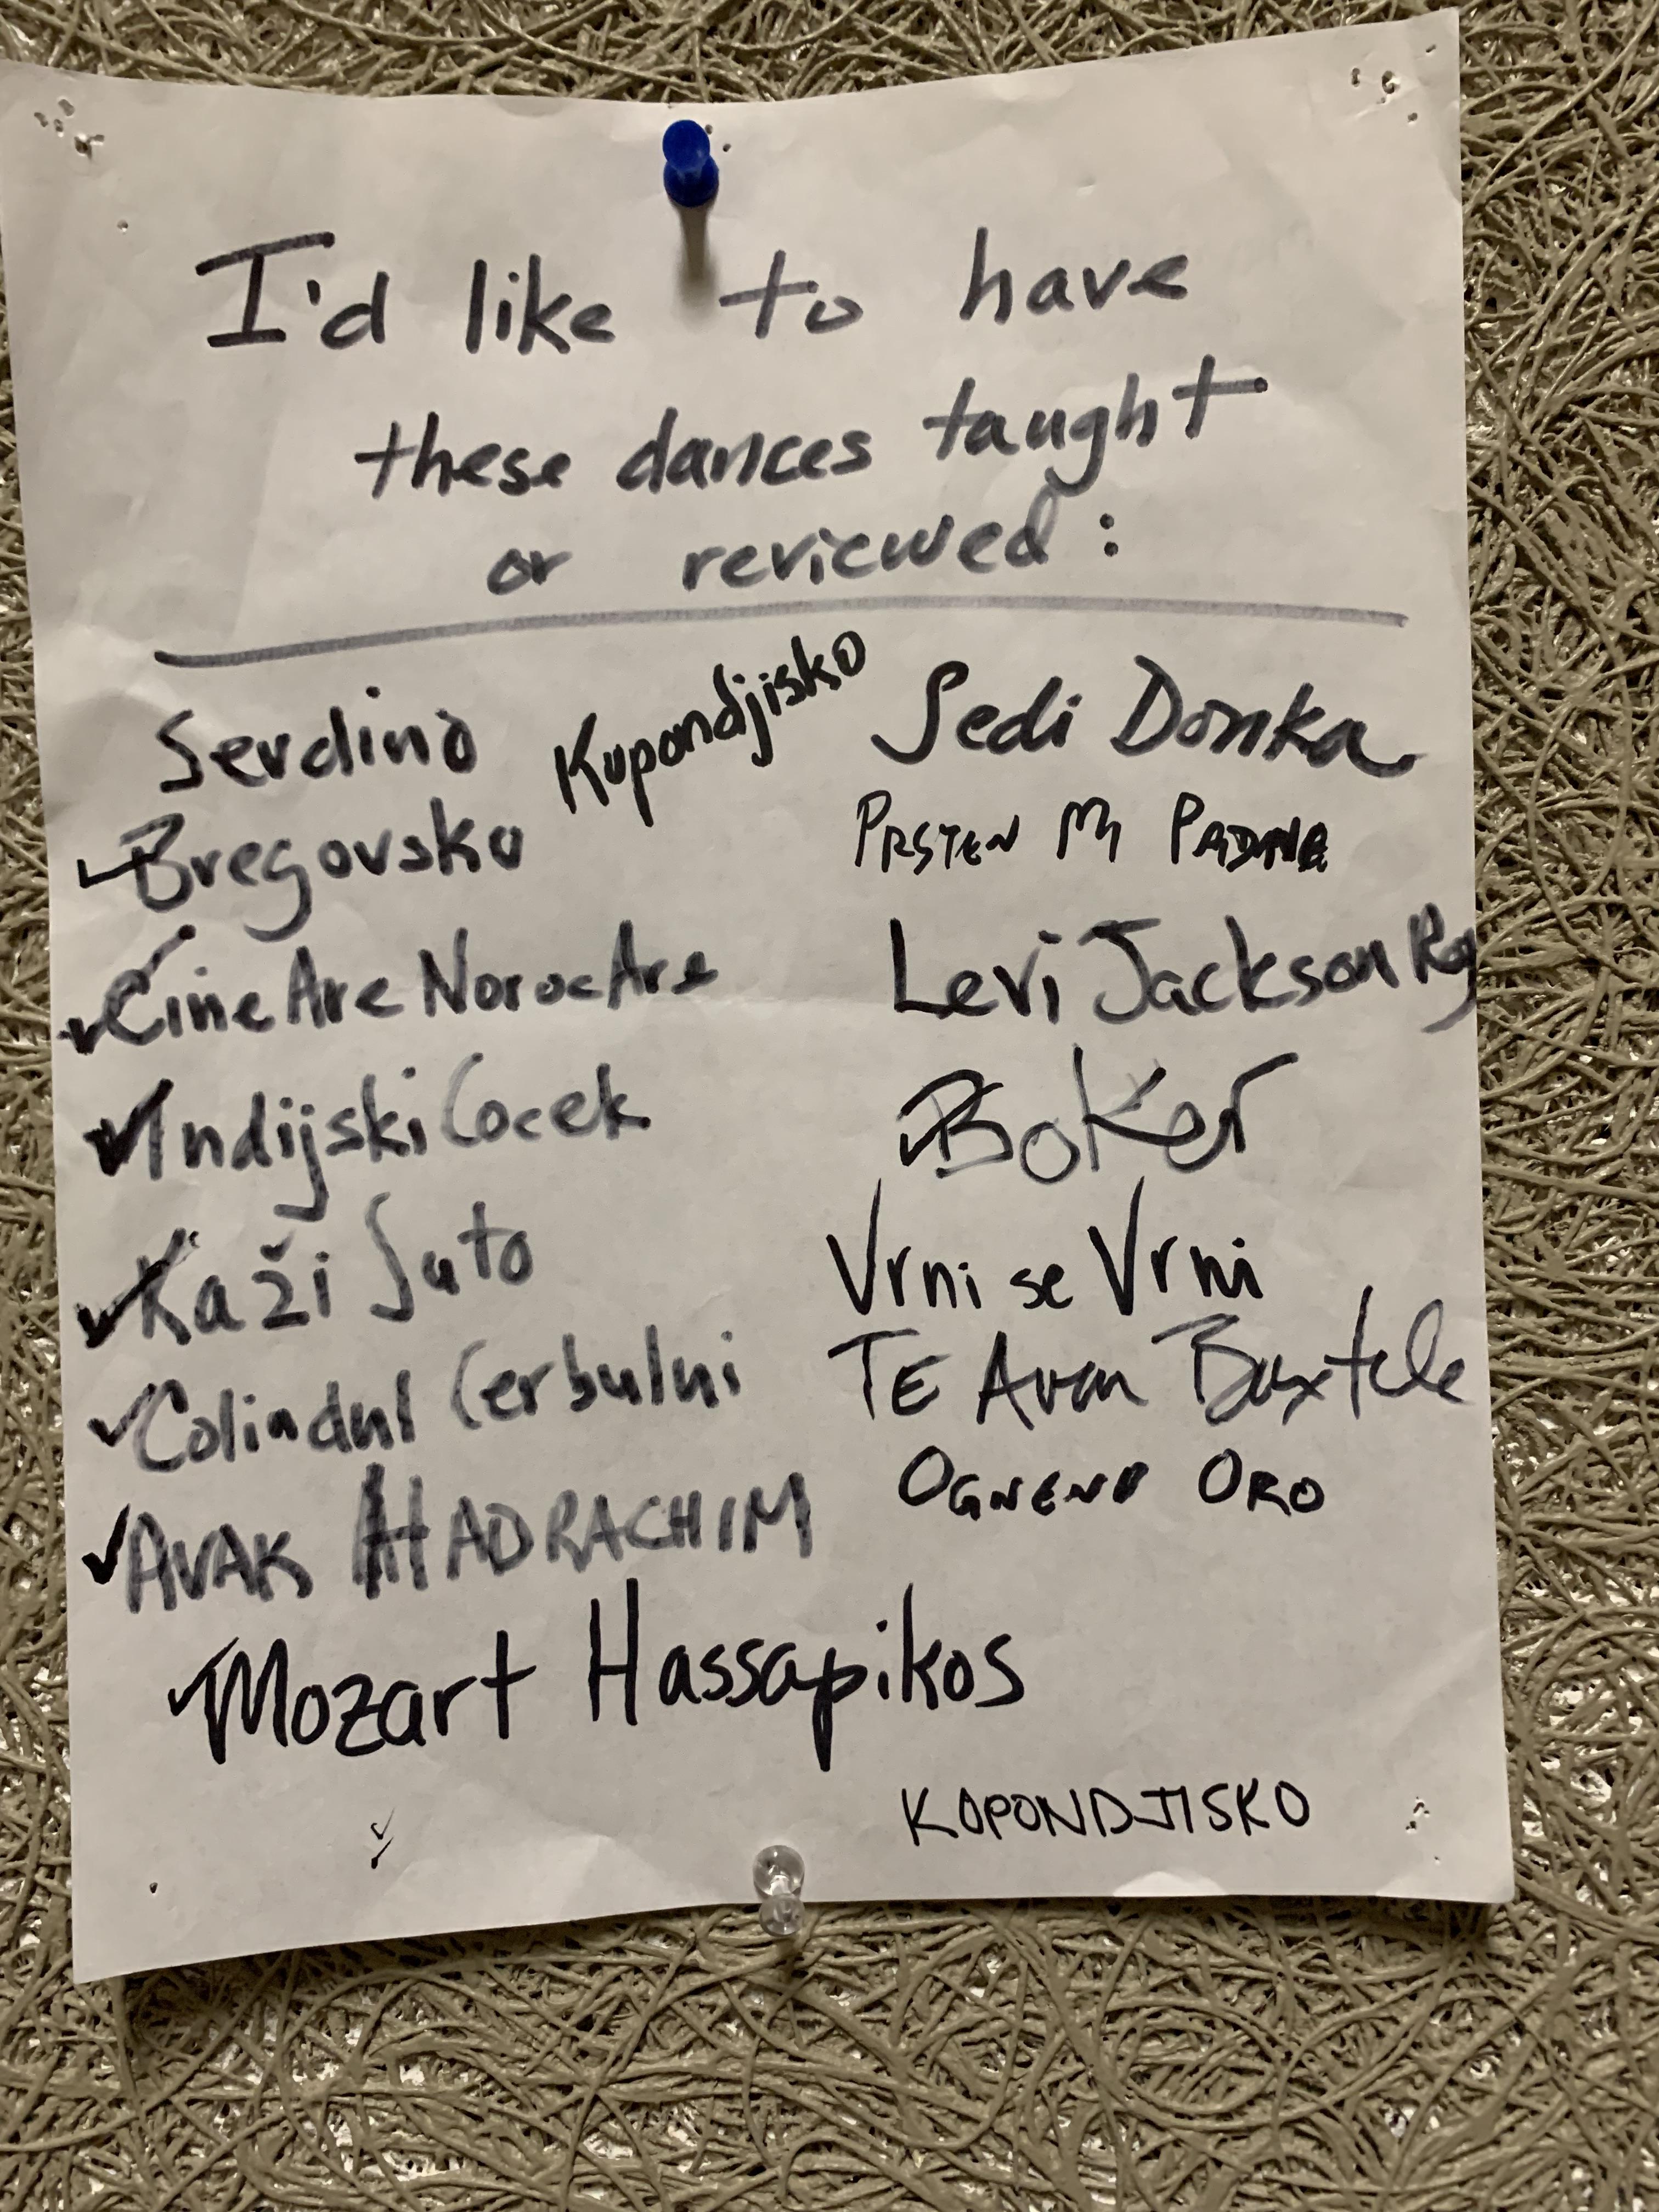 I'd like to have
these dances taught
or reviewed:
Sevdino
Kupondjisko
✓ Bregovsko
✓ Cine Are Noroc Are
✓ Indijski Cocek
✓ Kaži Suto
✓ Colindul Cerbului
✓ AVAK HADRACHIM
✓ Mozart Hassapikos
Sedi Donka
PRSTEN MI PADNA
Levi Jackson Rag
✓ Boker
Vrni se Vrni
TE Avan Baxtele
OGNENO ORO
KOPONDJISKO